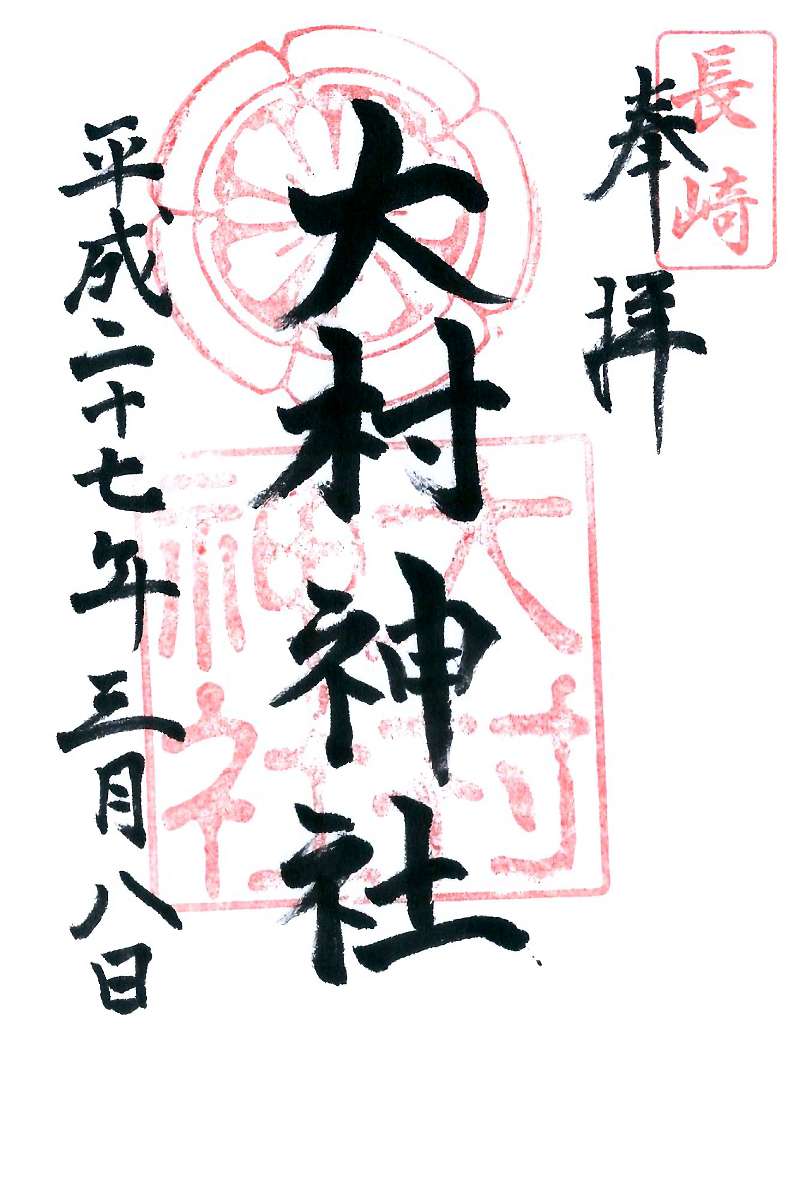 長崎
奉拝
大村神社
大村神社
平成二十七年三月八日